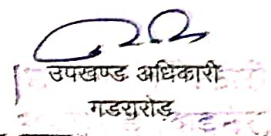 उपखण्ड अधिकारी
गडरारोड़